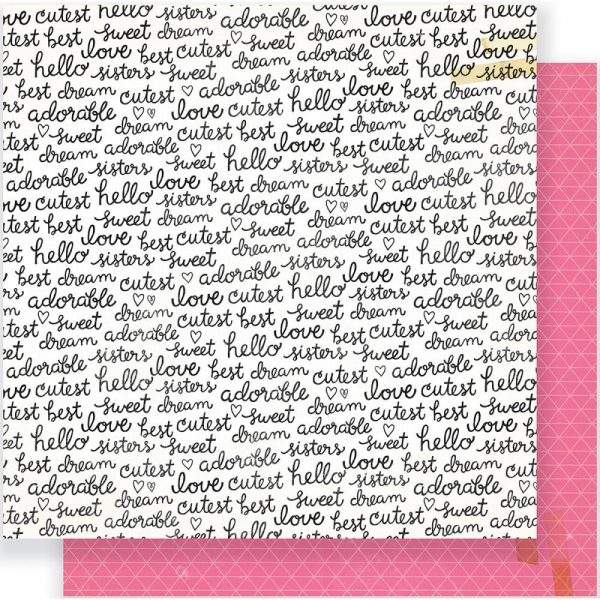 love cutest hello sisters adorable love cutest hello
cutest best sweet dream cutest sweet dream cutest best sweet
love best dream adorable love b
sweet hello sisters sweet adorable sisters sweet hello sisters
best dream cutest adorable love best dream
adorable love cutest hello sisters adorable
cutest sweet cutest best sweet dream cutest sweet
dream adorable love best dream
sweet sisters sweet hello sisters sweet
adorable love best dream cutest adorable
love cutest hello sisters adorable love cutest hello
cutest best sweet dream cutest sweet dream cutest best sweet
love best dream adorable love
sweet hello sisters sweet adorable sisters sweet hello sisters
best dream cutest adorable love best dream
adorable love cutest hello sisters adorable
cutest sweet cutest best sweet dream cutest sweet
dream adorable love best dream
sweet sisters sweet hello sisters sweet
adorable love best dream cutest adorable
love cutest hello sisters adorable love cutest hello
cutest best sweet dream cutest sweet dream cutest best sweet
love best dream adorable love
sweet hello sisters sweet adorable sisters sweet hello sisters
best dream cutest adorable love best dream
adorable love cutest hello sisters adorable
cutest sweet cutest best sweet dream cutest sweet
dream adorable love best dream
sisters sweet hello sisters sweet